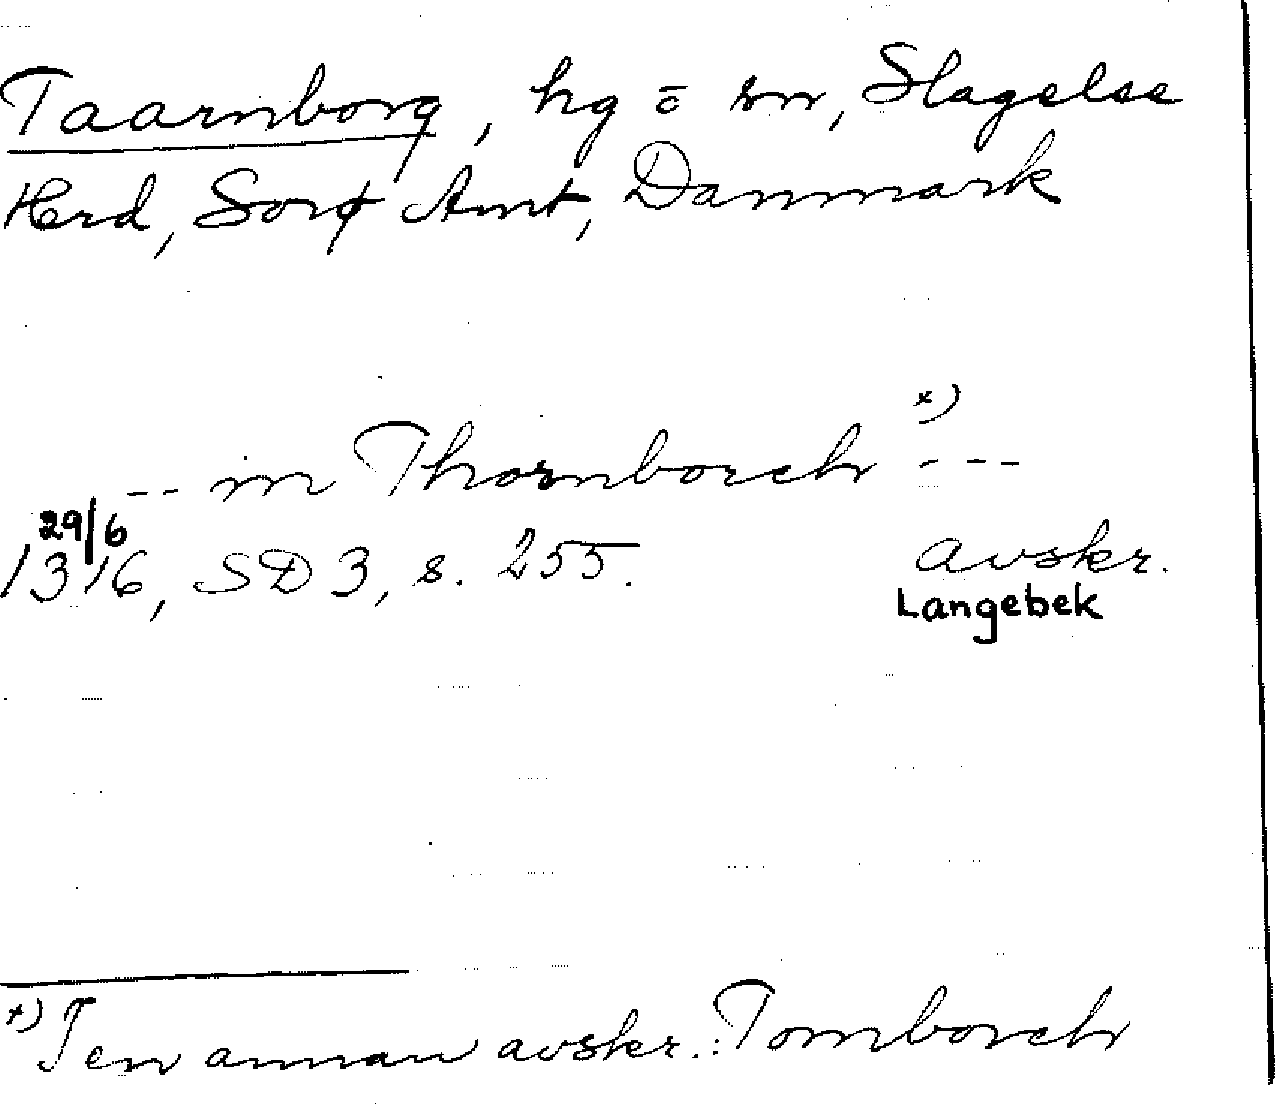 Taarnborg, hg o sn, Slagelse
Herd, Sorø Amt, Danmark
-- in Thornborch *) ---
29/6
1316, SD 3, s. 255. avskr.
Langebek
*) I en annan avskr.: Tornborch